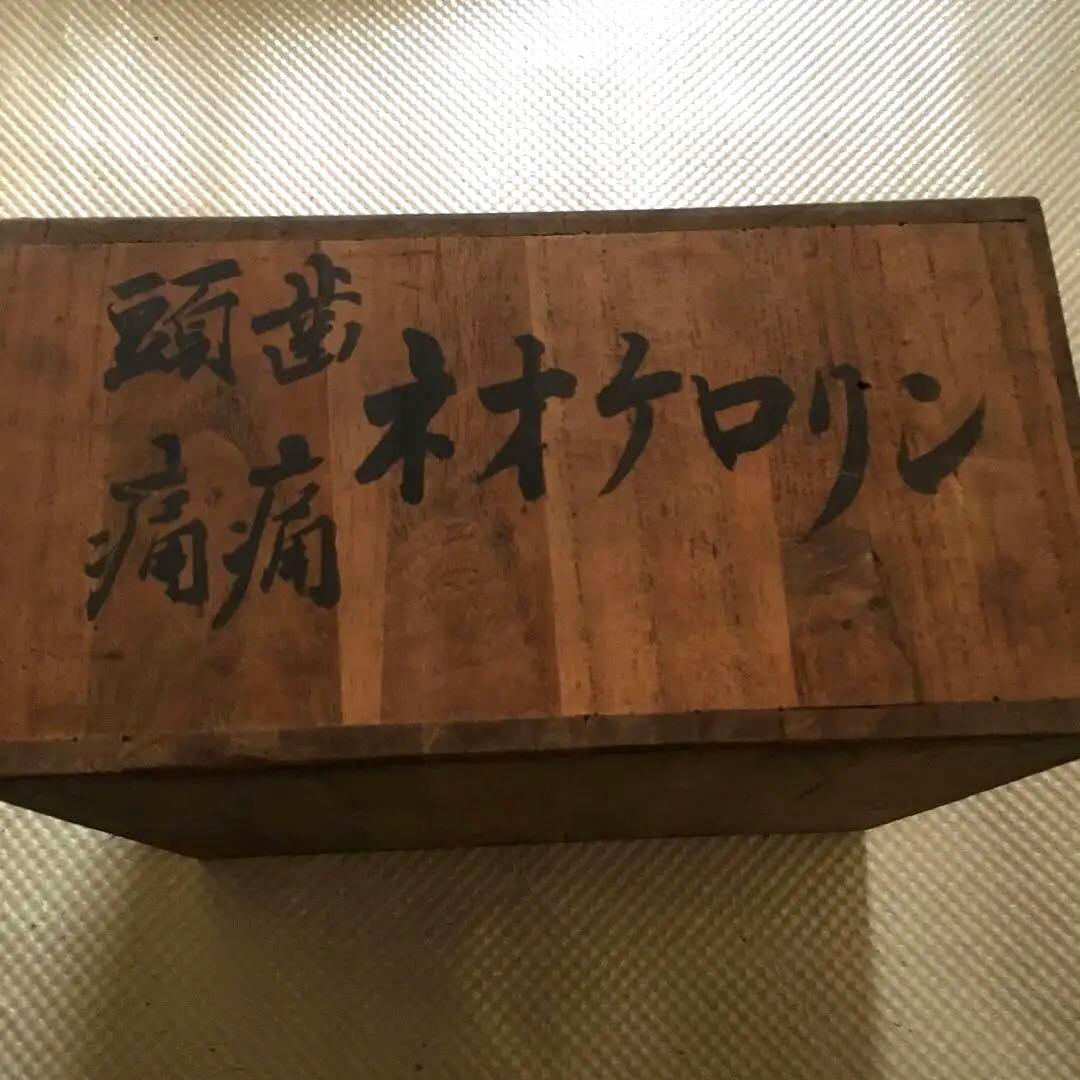 頭痛
歯痛
ネオケロリン